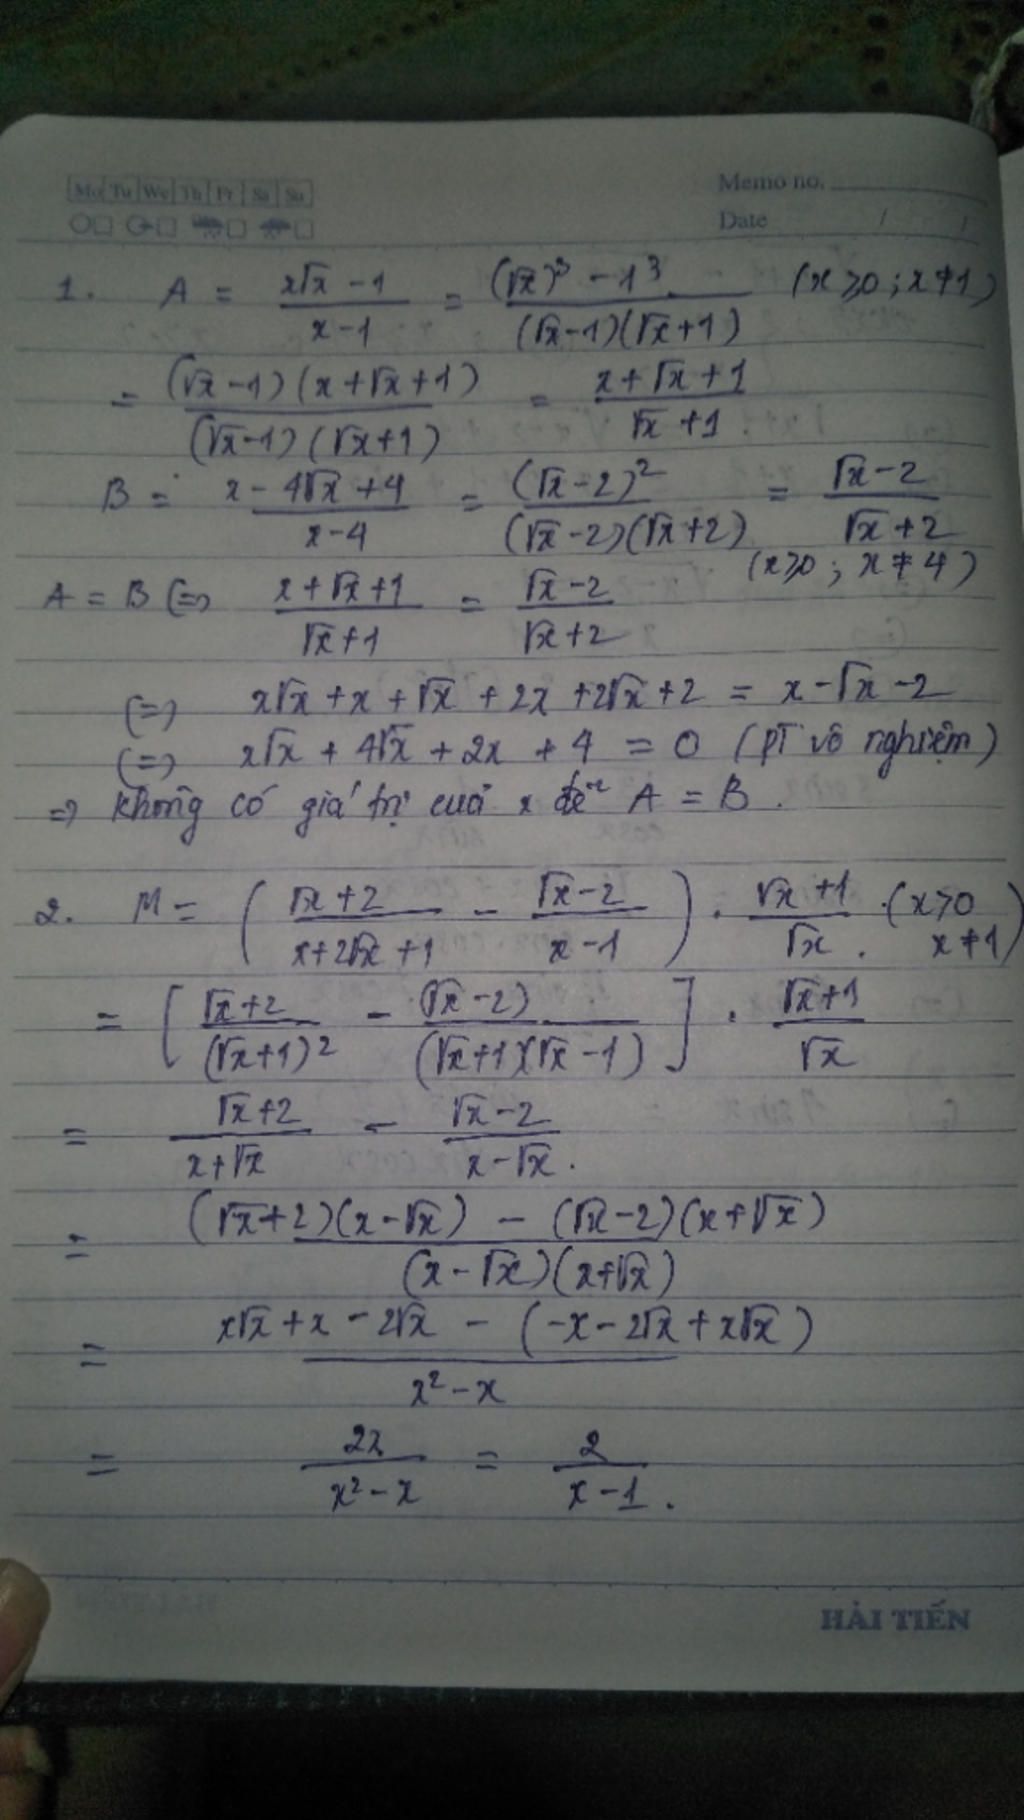 Mo Tu We Th Fr Sa Su
Memo no.
Date / /
1. A = (x√x - 1)/(x - 1) = ((√x)³ - 1³)/((√x-1)(√x+1)) (x ≥ 0 ; x ≠ 1)
= ((√x - 1)(x + √x + 1))/((√x-1)(√x+1)) = (x + √x + 1)/(√x + 1).
B = (x - 4√x + 4)/(x - 4) = (√x - 2)²/((√x - 2)(√x + 2)) = (√x - 2)/(√x + 2)
(x ≥ 0 ; x ≠ 4)
A = B (=) (x + √x + 1)/(√x + 1) = (√x - 2)/(√x + 2)
(=) x√x + x + √x + 2x + 2√x + 2 = x - √x - 2
(=) x√x + 4√x + 2x + 4 = 0 (PT vô nghiệm)
=> không có giá trị của x để A = B.
2. M = ((√x + 2)/(x + 2√x + 1) - (√x - 2)/(x - 1)) . (√x + 1)/√x . (x > 0 x ≠ 1)
= [(√x + 2)/(√x + 1)² - (√x - 2)/((√x + 1)(√x - 1))] . (√x + 1)/√x
= (√x + 2)/(x + √x) - (√x - 2)/(x - √x).
= ((√x + 2)(x - √x) - (√x - 2)(x + √x))/((x - √x)(x + √x))
= (x√x + x - 2√x - (-x - 2√x + x√x))/(x² - x)
= 2x/(x² - x) = 2/(x - 1).
HẢI TIẾN